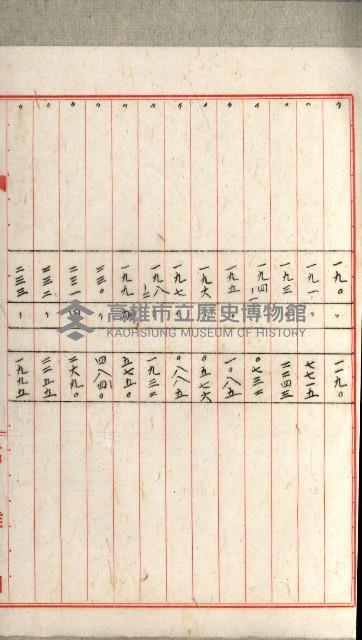 〃 一九〇 〃 一一九〇
〃 一九一 〃 七七一五
〃 一九三 〃 二二四三
〃 一九四ノ一 〃 〇七三二
〃 一九五 〃 一〇八五
〃 一九六 〃 〇五七六
〃 一九七 〃 〇八八五
〃 一九八ノ二 〃 一九三二
〃 一九九 五七五〇
〃 二三〇 〃 四八四〇
〃 二三一 四 二六九〇
〃 二三二 〃 二二五五
〃 二三三 〃 一九九五
高雄市立歷史博物館
KAOHSIUNG MUSEUM OF HISTORY